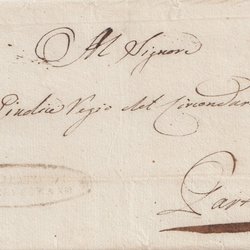 Al Signore
Giudice Regio del Circondar
Parm